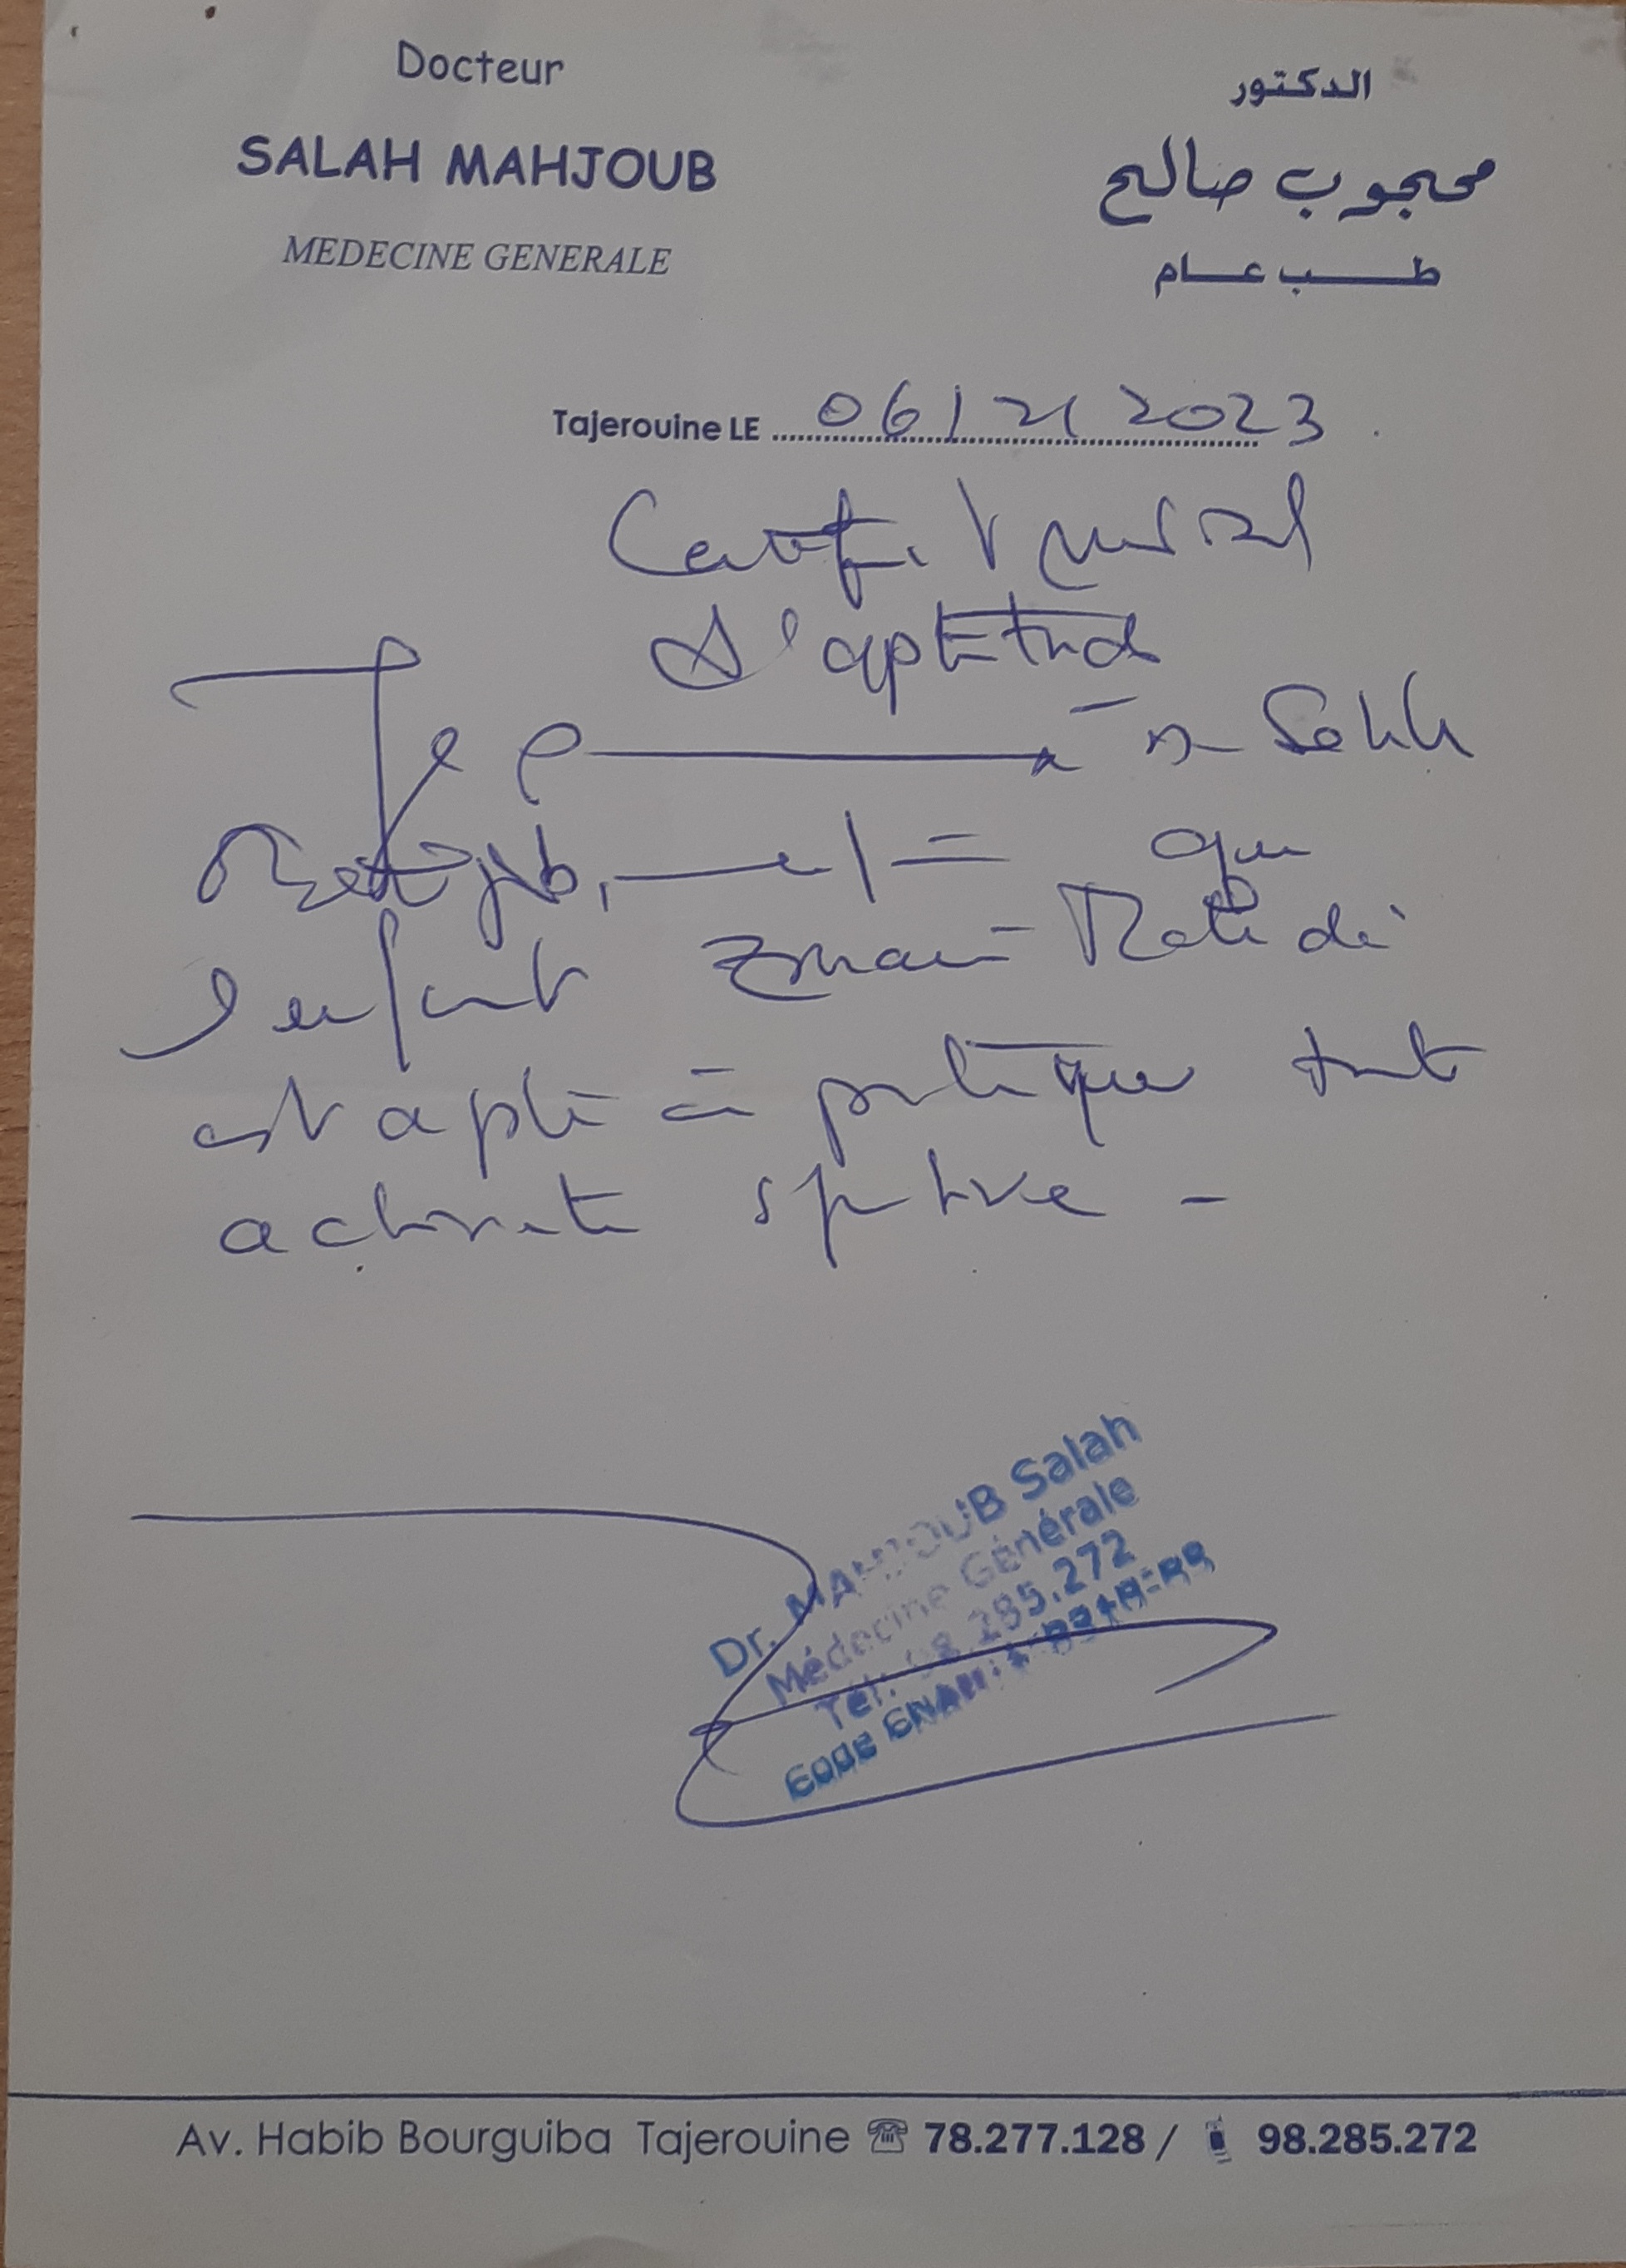 Docteur
SALAH MAHJOUB
MEDECINE GENERALE
الدكتور
محجوب صالح
طب عام
Tajerouine LE 06/ 2023
Certificat médical
d'aptitude
Je Salah
Mahjoub, que
l'enfant
est apte à pratiquer toute
activité sportive -
Dr. MAHJOUB Salah
Médecine Générale
Tél: 98 285.272
CODE CNAM:
Av. Habib Bourguiba Tajerouine 78.277.128 / 98.285.272